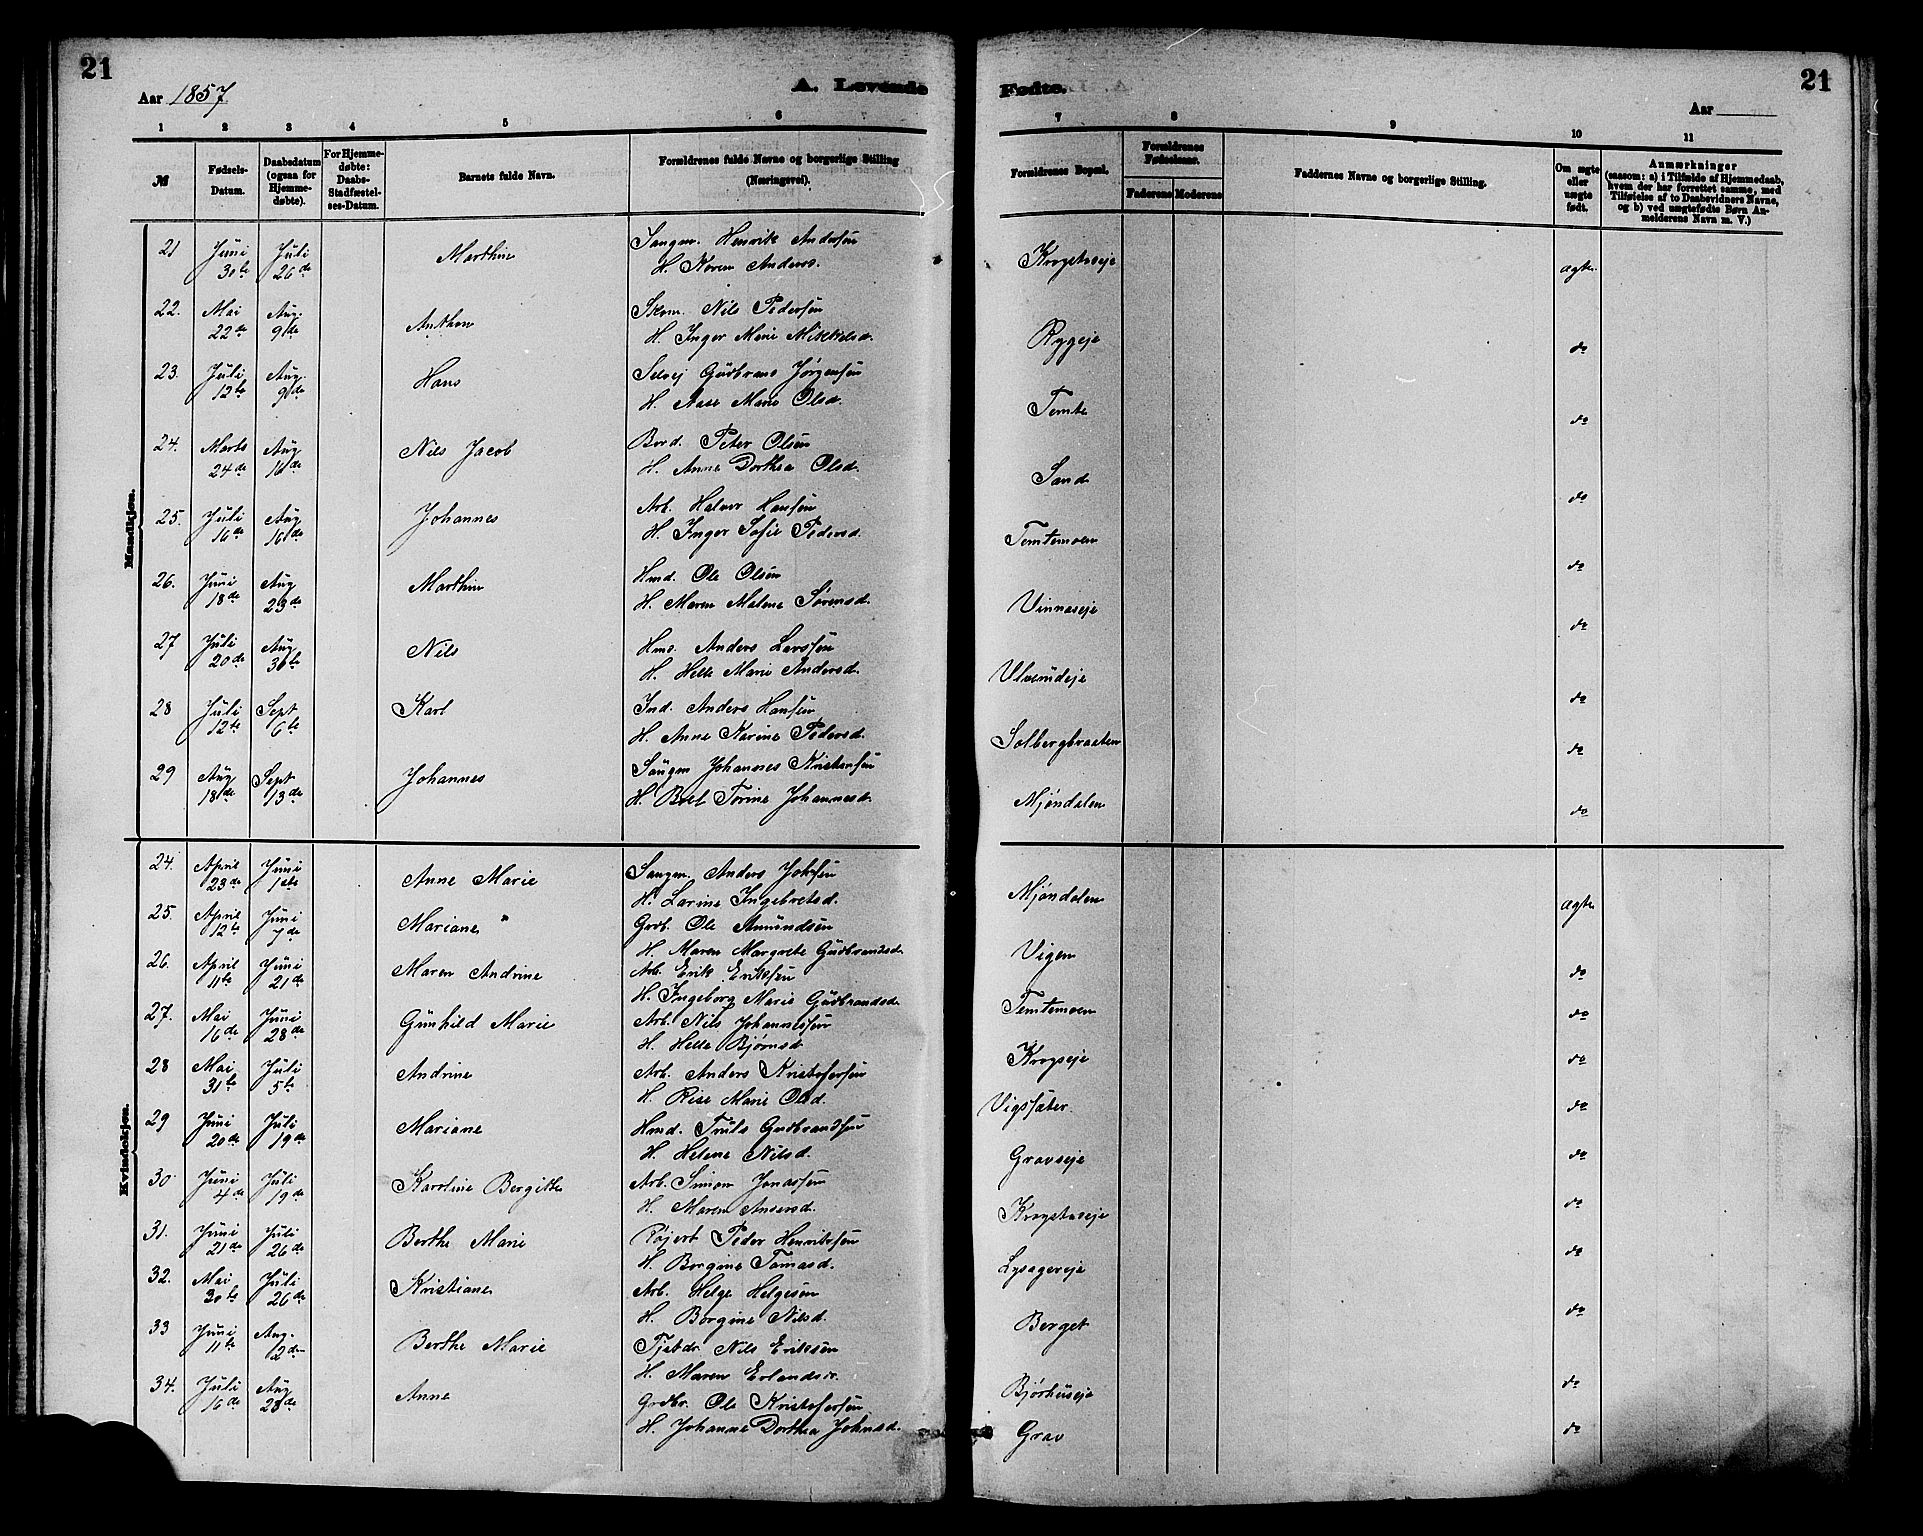 21
Aar 1857
A. Levende
1 2 3 4 5 6
№
Fødsels-Datum.
Daabsdatum (ogsaa for Hjemmedøbte).
For Hjemmedøbte: Daabs-Stadfæstelses-Datum.
Barnets fulde Navn.
Forældrenes fulde Navne og borgerlige Stilling (Næringsvei).
Mandkjøn.
21 Juni 30te Juli 26de Marthin Saugm. Henrik Andersen
H. Karen Anders.
22. Mai 22de Aug. 9de Anthon Skom. Nils Pedersen
H. Inger Marie Mikkelsd.
23. Juli 12te Aug. 9de Hans Selvej Gudbrans Jørgensen
H. Aase Marie Olsd.
24. Marts 24de Aug 16de Nils Jacob Bord. Peter Olsen
H. Anne Dorthea Olsd.
25. Juli 16de Aug 16de Johannes Arb. Halvor Hansen
H. Inger Sofie Pedersd.
26. Juni 18de Aug 23de Marthin Hmd. Ole Olsen
H. Maren Malene Sørensd.
27 Juli 20de Aug 30te Nils Hms. Anders Larssen
H. Helle Marie Andersd.
28 Juli 12te Sept 6te Karl Ind. Anders Hansen
H. Anne Karine Pedersd.
29 Aug 18de Sept 13de Johannes Saugm Johannes Kristensen
H. Berte Torine Johannesd.
Kvindekjøn.
24. April 23de Juni 1ste Anne Marie Saugm. Anders Johnsen
H. Larine Ingebretsd.
25. April 12te Juni 7de Mariane Grdb. Ole Amundsen
H. Maren Margrete Gudbrandsd.
26. April 11te Juni 21de Maren Andrine Arb. Erik Eriksen
H. Ingeborg Marie Gudbrandsd.
27. Mai 16de Juni 28de Gunhild Marie Arb. Nils Johannessen
H. Helle Bjørnsd.
28 Mai 31te Juli 5te Andrine Arb. Anders Kristofersen
H. Rise Marie Olsd.
29 Juni 20de Juli 19de Mariane Hmd. Truls Gudbrandsen
H. Helene Nilsd.
30 Juni 4de Juli 19de Karoline Bergitte Arb. Simon Jonassen
H. Maren Andersd.
31. Juni 21de Juli 26de Berthe Marie Røjert Peder Henriksen
H. Borgine Tomasd.
32. Mai 30te Juli 26de Kristiane Arb. Helge Helgesen
H. Borgine Nilsd.
33 Juni 11te Aug. 2den Berthe Marie Tjebdr Nils Eriksen
H. Maren Erlandsd.
34. Juli 16de Aug 23de Anne Grdbr. Ole Kristofersen
H. Johanne Dorthea Johnsd.
Fødte.
21
Aar
7 8 9 10 11
Forældrenes Bopæl.
Forældrenes Fødselsaar.
Faderens Moderens
Faddernes Navne og borgerlige Stilling.
Om ægte eller uægte født.
Anmærkninger
(saasom: a) i Tilfælde af Hjemmedaab, hvem der har forrettet samme, med Tilføtelse af to Daabsvidners Navne, og b) ved uægtefødte Børn Anmelderens Navn m. V.)
Krogstadeje ægte
Rygeje do
Temte do
Sand do
Temtemoen do
Vinnaseje do
Ulverudeje do
Solbergbraaten do
Mjøndalen do
Mjøndalen ægte
Vigen do
Temtemoen do
Krogseje do
Vigssæter do
Gravseje do
Krogstadeje do
Lysagereje do
Berget do
Bjørhuseje do
Grav do